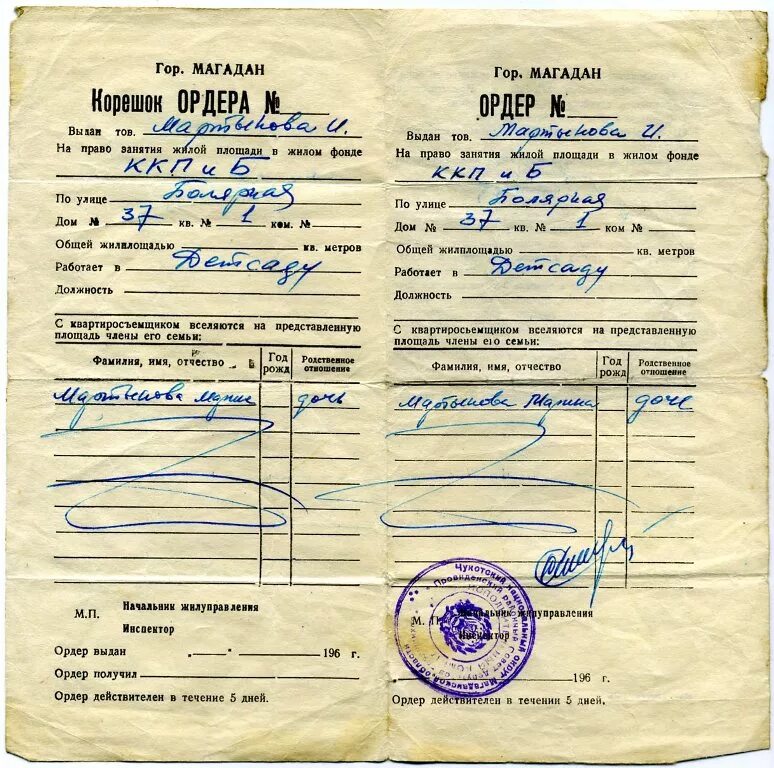 Гор. МАГАДАН
Корешок ОРДЕРА №
Выдан тов. Мартынова И.
На право занятия жилой площади в жилом фонде
ККП и Б
По улице Полярная
Дом № 37 кв. № 1 ком. №
Общей жилплощадью кв. метров
Работает в Детсаду
Должность
С квартиросъемщиком вселяются на представленную
площадь члены его семьи:
Фамилия, имя, отчество
Год рожд
Родственное отношение
Мартынова дочь
М.П. Начальник жилуправления
Инспектор
Ордер выдан 196 г.
Ордер получил
Ордер действителен в течение 5 дней.
Гор. МАГАДАН
ОРДЕР №
Выдан тов. Мартынова И.
На право занятия жилой площади в жилом фонде
ККП и Б
По улице Полярная
Дом № 37 кв. № 1 ком №
Общей жилплощадью кв. метров
Работает в Детсаду
Должность
С квартиросъемщиком вселяются на представленную
площадь члены его семьи:
Фамилия, имя, отчество
Год рожд
Родственное отношение
Мартынова Марина дочь
Чукотский национальный округ Магаданской области
Провиденский районный Совет
М. П. Начальник жилуправления
Инспектор
196 г.
Ордер действителен в течении 5 дней.